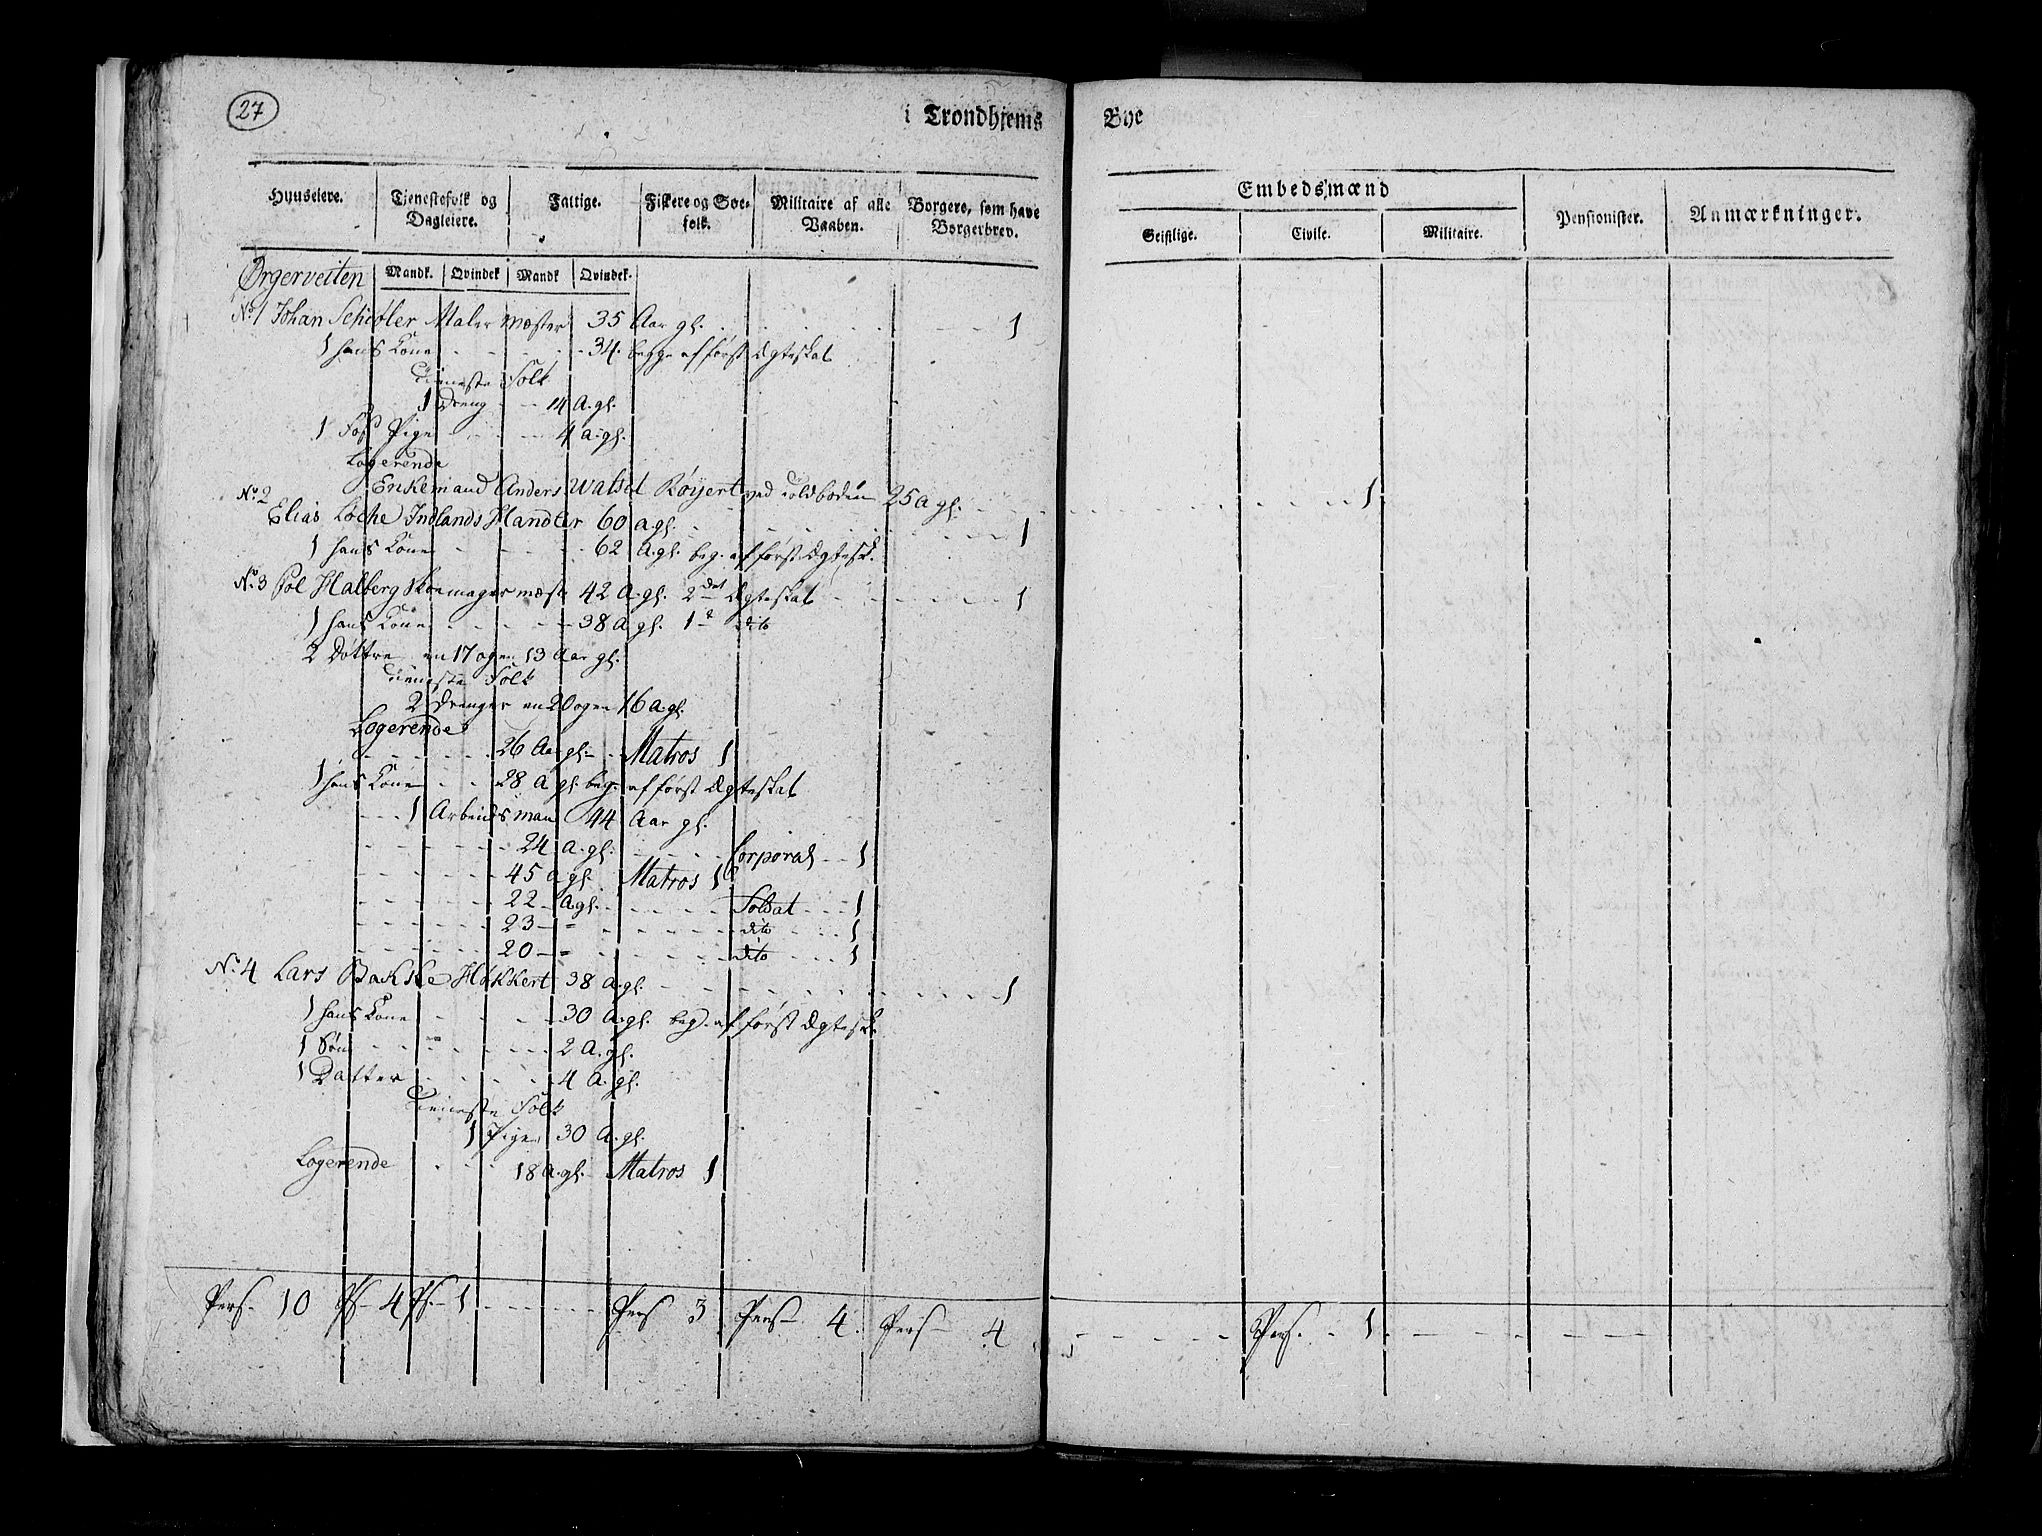 27
i Trondhjems Bye
Huuseiere. Tjenestefolk og Dagleiere. Fattige. Fiskere og Søefolk. Militaire af alle Vaaben. Borgere, som have Borgerbrev. Embedsmænd Geistlige. Civile. Militaire. Pensionister. Anmærkninger.
Mandk. Qvindek Mandk Qvindek.
Ørgerveiten
No 1 Johan Schiøler Maler mæster 35 Aar gl. 1
1 hans Kone 34. begge af først Ægteskab
Tieneste Folk
1 Dreng 14 A. gl.
1 Fos Pige 4 A. gl.
Logerende
Enkemand Anders Walset Røyert ved Toldboden 25 A gl. 1
No. 2
Elias Loche Indlands Handler 60 A gl. 1
1 hans Kone 62 A. gl. beg. af først Ægtesk.
No. 3 Pol Halberg Skoemager mæst 42 A. gl. 2det Ægteskab 1
1 hans Kone 38 A gl. 1te dito
2 Døttre en 17 og en 13 Aar gl.
Tieneste Folk
2 Drenger en 20 og en 16 A gl.
Logerende
26 Aar gl. Matros 1
1 hans Kone 28 A gl. beg. af først Ægteskab
1 Arbeidsman 44 Aar gl.
24 A. gl. Corporal 1
45 A gl. Matros 1
22 A gl. Soldat 1
23 - " dito 1
20 - " dito 1
No. 4 Lars Backke Høkkert 38 A. gl. 1
1 hans Kone 30 A. gl. beg. af først Ægtesk.
1 Søn 2 A. gl.
1 Datter 4 A. gl.
Tieneste Folk
1 Pige 30 A. gl.
Logerende 18 A. gl. Matros 1
Pers. 10 Ps. 4 Ps. 1 Pers 3 Pers 4. Pers 4 Pers. 1